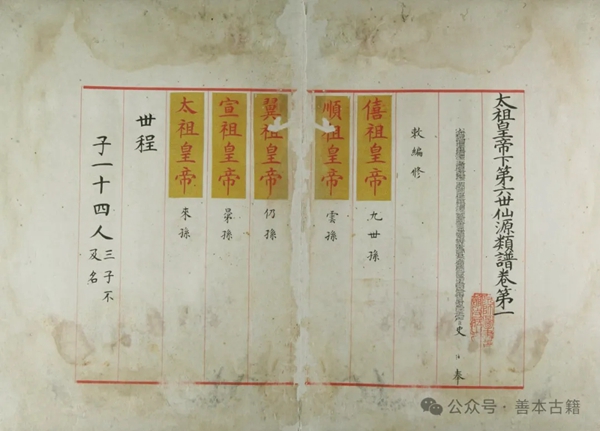 太祖皇帝下第六世仙源類譜卷第一
史
奉
敕編修
僖祖皇帝 九世孫
順祖皇帝 雲孫
翼祖皇帝 仍孫
宣祖皇帝 晜孫
太祖皇帝 來孫
世程
子一十四人 三子不
及名
公众号·善本古籍